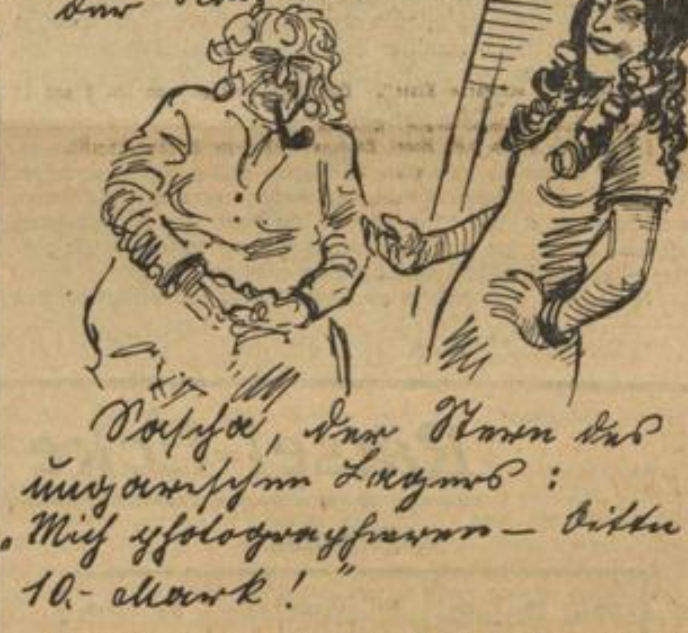 der
Sascha, der Stern des
ungarischen Lagers :
„Mich photographieren — bitte
10.- Mark!"